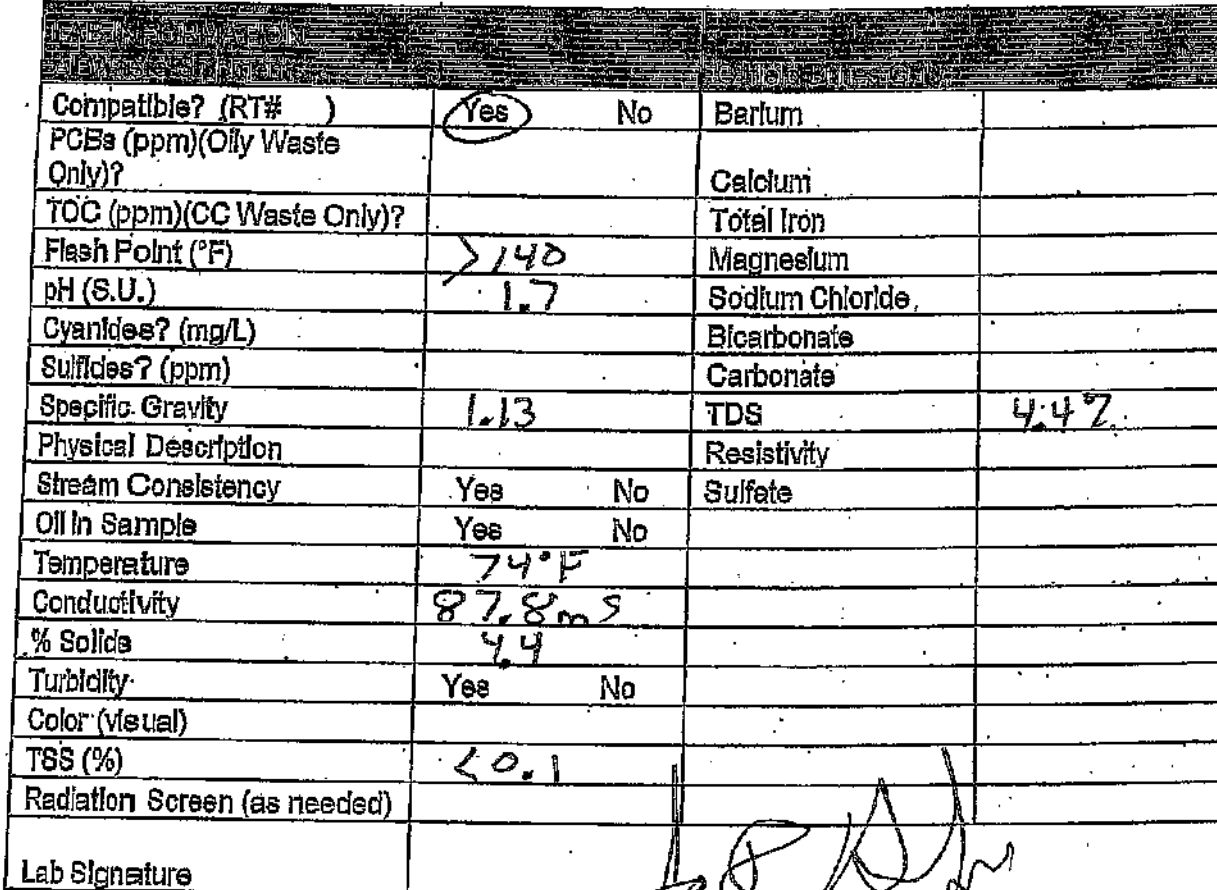 LAB INFORMATION
Compatible? (RT# ) Yes No Barium
PCBs (ppm)(Oily Waste
Only)? Calcium
TOC (ppm)(CC Waste Only)? Total Iron
Flash Point (°F) >140 Magnesium
pH (S.U.) 1.7 Sodium Chloride
Cyanides? (mg/L) Bicarbonate
Sulfides? (ppm) Carbonate
Specific Gravity 1.13 TDS 4.4%
Physical Description Resistivity
Stream Consistency Yes No Sulfate
Oil in Sample Yes No
Temperature 74°F
Conductivity 87.8mS
% Solids 4.4
Turbidity Yes No
Color (visual)
TSS (%) <0.1
Radiation Screen (as needed)
Lab Signature